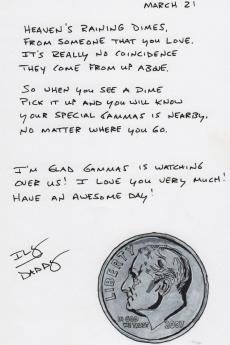 MARCH 21
HEAVEN'S RAINING DIMES,
FROM SOMEONE THAT YOU LOVE.
IT'S REALLY NO COINCIDENCE
THEY COME FROM UP ABOVE.
SO WHEN YOU SEE A DIME
PICK IT UP AND YOU WILL KNOW
YOUR SPECIAL GAMMAS IS NEARBY,
NO MATTER WHERE YOU GO.
I'M GLAD GAMMAS IS WATCHING
OVER US! I LOVE YOU VERY MUCH!
HAVE AN AWESOME DAY!
ILY
DADDY
LIBERTY
IN GOD
WE TRUST